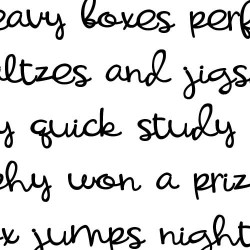 eavy boxes perf
ltzes and jigs
y quick study
phy won a priz
x jumps night